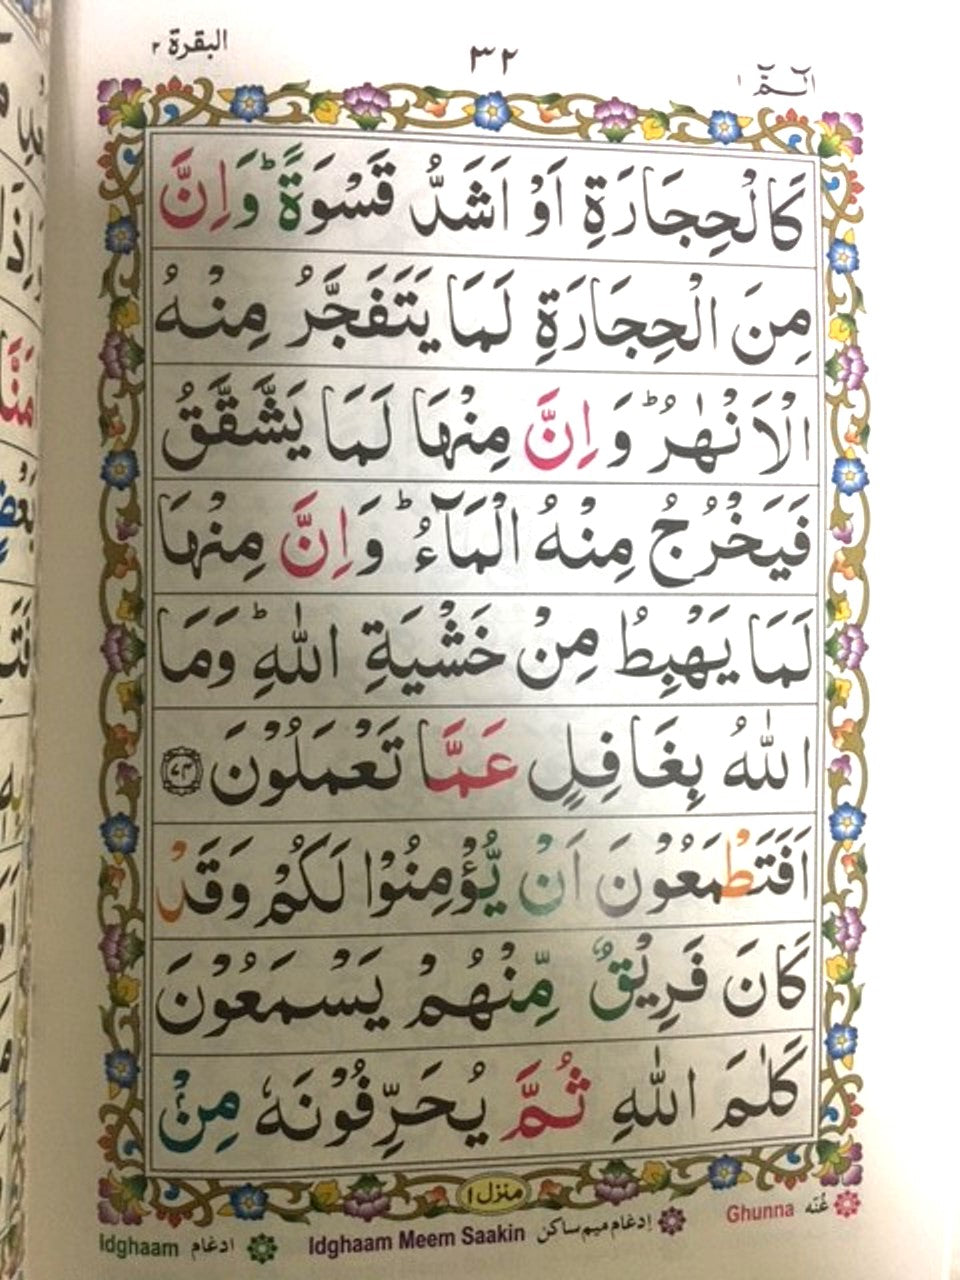 البقرة ٢
٣٢
الٓمّٓ ١
كَالْحِجَارَةِ اَوْ اَشَدُّ قَسْوَةً ؕ وَاِنَّ
مِنَ الْحِجَارَةِ لَمَا يَتَفَجَّرُ مِنْهُ
الْاَنْهٰرُ ؕ وَ اِنَّ مِنْهَا لَمَا يَشَّقَّقُ
فَيَخْرُجُ مِنْهُ الْمَآءُ ؕ وَ اِنَّ مِنْهَا
لَمَا يَهْبِطُ مِنْ خَشْيَةِ اللّٰهِ ؕ وَمَا
اللّٰهُ بِغَافِلٍ عَمَّا تَعْمَلُوْنَ ٧٤
اَفَتَطْمَعُوْنَ اَنْ يُّؤْمِنُوْا لَكُمْ وَقَدْ
كَانَ فَرِيْقٌ مِّنْهُمْ يَسْمَعُوْنَ
كَلٰمَ اللّٰهِ ثُمَّ يُحَرِّفُوْنَهٗ مِنْۢ
منزل ١
Idghaam ادغام Idghaam Meem Saakin إدغام ميم ساكن Ghunna غُنّه